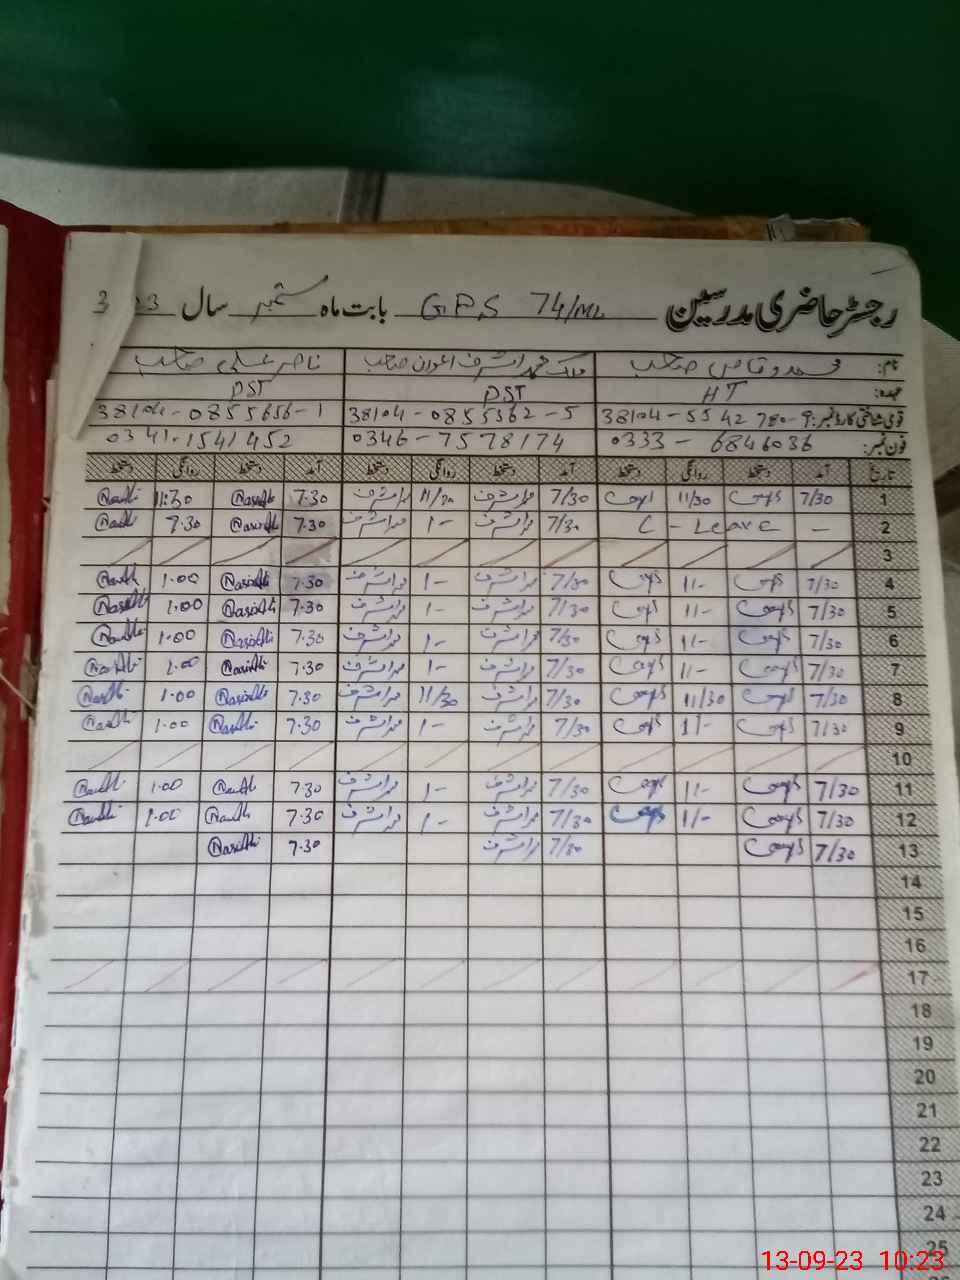 رجسٹر حاضری مدرسین G.P.S 74/ML بابت ماہ ستمبر سال
نام: محمد وقاص صاحب ملک محمد اشرف اعوان صاحب ناصر علی صاحب
عہدہ: HT PST PST
قومی شناختی کارڈ نمبر: 38104-5542780-9 38104-0855362-5 38104-0855656-1
فون نمبر: 0333-6846036 0346-7578174 0341-1541452
تاریخ آمد دستخط روانگی دستخط آمد دستخط روانگی دستخط آمد دستخط روانگی دستخط
1 7/30 11/30 7/30 محمد اشرف 11/30 محمد اشرف 7.30 Nasir Ali 11:30
2 C - Leave - 7/30 محمد اشرف 1- محمد اشرف 7.30 Nasir Ali 7.30
3
4 7/30 1/- 7/30 محمد اشرف 1- محمد اشرف 7.30 Nasir Ali 1.00
5 7/30 1/- 7/30 محمد اشرف 1- محمد اشرف 7.30 Nasir Ali 1.00 Nasir Ali
6 7/30 1/- 7/30 محمد اشرف 1- محمد اشرف 7.30 Nasir Ali 1.00
7 7/30 1/- 7/30 محمد اشرف 1- محمد اشرف 7.30 Nasir Ali 1.00 Nasir Ali
8 7/30 11/30 7/30 محمد اشرف 11/30 محمد اشرف 7.30 Nasir Ali 1.00
9 7/30 1/- 7/30 محمد اشرف 1- محمد اشرف 7.30 Nasir Ali 1.00
10
11 7/30 1/- 7/30 محمد اشرف 1- محمد اشرف 7.30 1.00
12 7/30 1/- 7/30 محمد اشرف 1- محمد اشرف 7.30 1.00
13 7/30 7/30 محمد اشرف 7.30 Nasir Ali
14
15
16
17
18
19
20
21
22
23
24
25
13-09-23 10:23